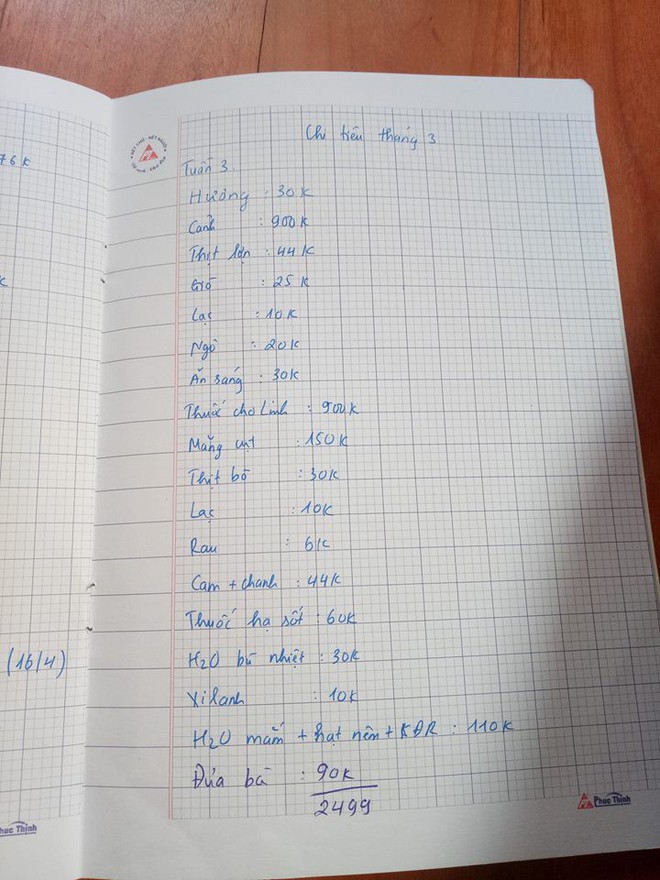 76K
K
(16/4)
Phúc Thịnh
Chi tiêu tháng 3
Tuần 3
Hường : 30K
Cảnh : 900K
Thịt lợn : 44K
Giò : 25K
Lạc : 10K
Ngô : 20K
Ăn sáng : 30K
Thuốc cho Linh : 900K
Măng cụt : 150K
Thịt bò : 30K
Lạc : 10K
Rau : 6K
Cam + chanh : 44K
Thuốc hạ sốt : 60K
H2O bù nhiệt : 30K
Xilanh : 10K
H2O mắm + hạt nêm + KĐR : 110K
Đưa bà : 90K
2499
Phúc Thịnh